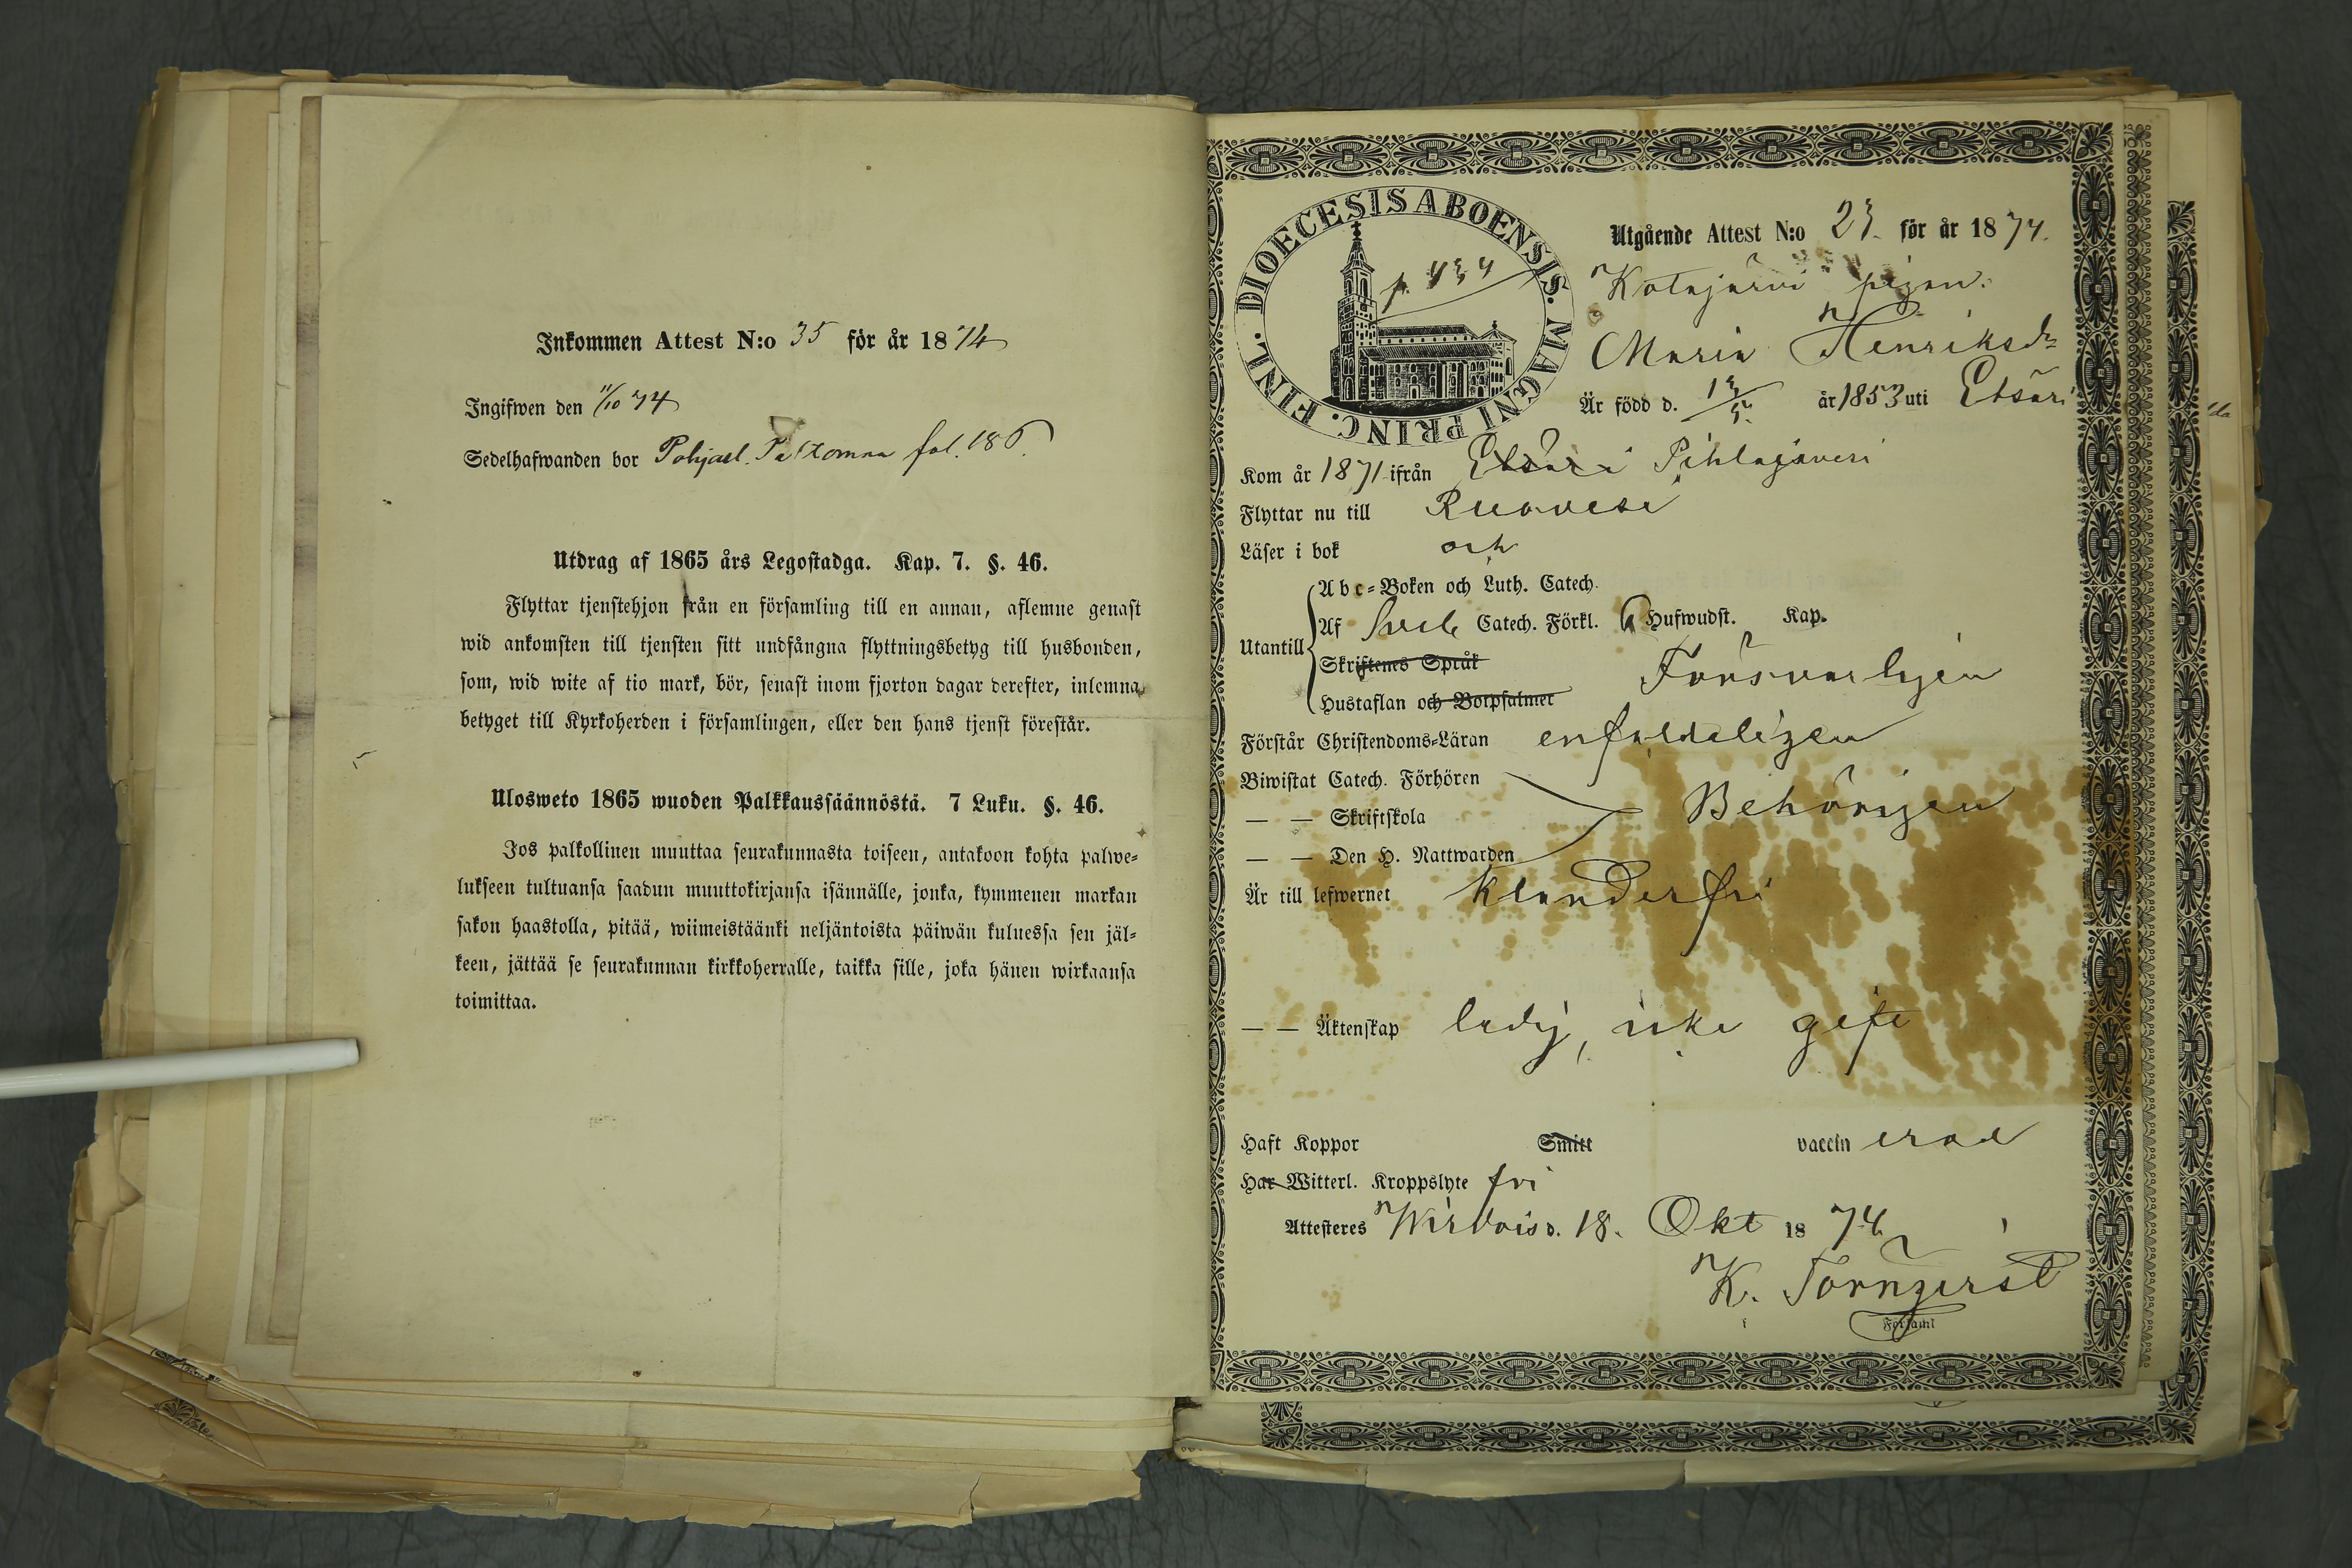 Inkommen Attest N:o 35 för år 1874
Ingifwen den 11/10 74
Sedelhafwanden bor Pohjasl. fol. 186.
Utdrag af 1865 års Legostadga. Kap. 7. §. 46.
Flyttar tjenstehjon från en församling till en annan, aflemne genast
wid ankomsten till tjensten sitt undfångna flyttningsbetyg till husbonden,
som, wid wite af tio mark, bör, senast inom fjorton dagar derefter, inlemna
betyget till Kyrkoherden i församlingen, eller den hans tjenst förestår.
Ulosweto 1865 wuoden Palkkaussäännöstä. 7 Luku. §. 46.
Jos palkollinen muuttaa seurakunnasta toiseen, antakoon kohta palwe-
lukseen tultuansa saadun muuttokirjansa isännälle, jonka, kymmenen markan
sakon haastolla, pitää, wiimeistäänki neljäntoista päiwän kuluessa sen jäl-
keen, jättää se seurakunnan kirkkoherralle, taikka sille, joka hänen wirkaansa
toimittaa.
DIOECESIS ABOENSIS. MAGNI PRINC. FINL.
p. 434
Utgående Attest N:o 23. för år 1874.
Kotajärvi pigan
Maria Henriksdr
Är född d. 13/5. år 1853 uti Etsäri
Kom år 1871 ifrån Etsäri Pihlajavesi
Flyttar nu till Ruovesi
Läser i bok och
Utantill
Abc-Boken och Luth. Catech.
Af Sveb Catech. Förkl. 6 Hufwudst. Kap.
Skriftenes Språk
Hustaflan och Botpsalmer
Försvarligen
Förstår Christendoms-Läran enfaldeligen
Biwistat Catech. Förhören
— — Skriftskola Behörigen
— — Den H. Nattwarden
Är till lefwernet klanderfri
— — Äktenskap ledig, icke gift
Haft Koppor Smitt vaccin erad
Har Witterl. Kroppslyte fri
Attesteres Wirdois d. 18. Okt 1874
K. Törnqvist
Församl